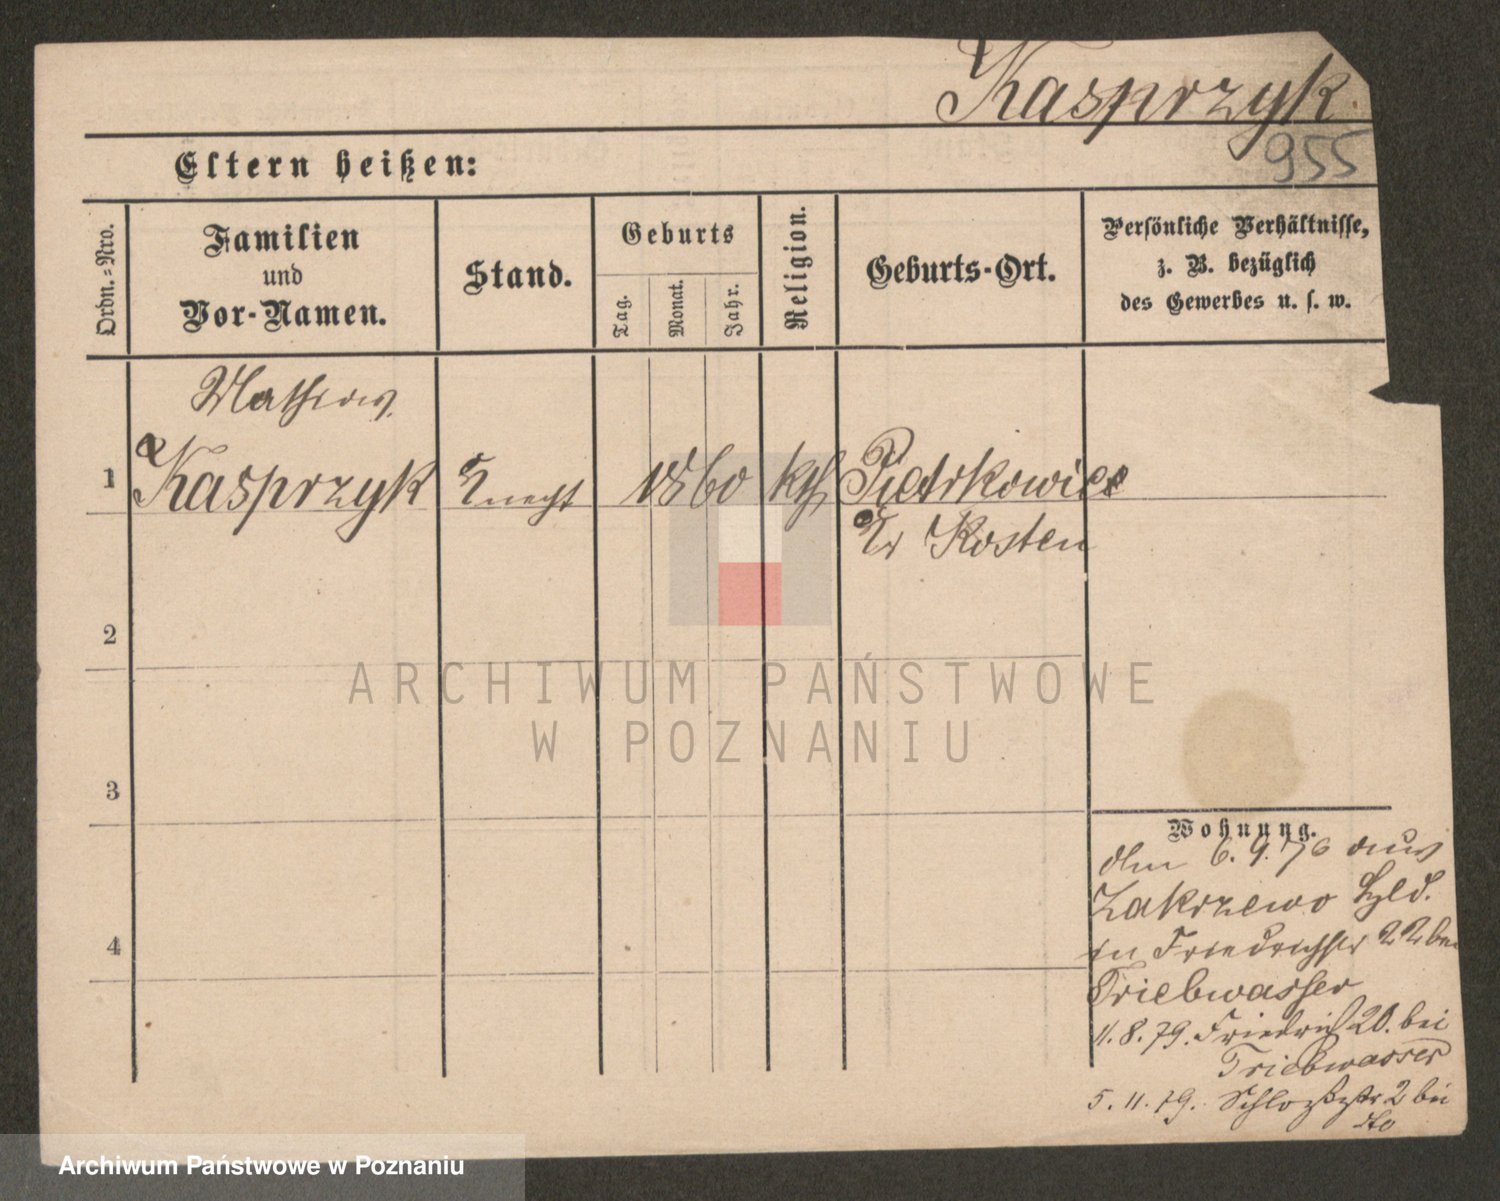 Kasprzyk
955
Eltern heißen:
Ordn.-Nro.
Familien
und
Vor-Namen.
Stand.
Geburts
Tag.
Monat.
Jahr.
Religion.
Geburts-Ort.
Persönliche Verhältnisse,
z. B. bezüglich
des Gewerbes u. s. w.
1
Kasprzyk Knecht 1860 kth Pietrkowice
Kr Kosten
2
3
4
Wohnung.
den 6. 9. 76 aus
Zakrzewo
in Friedrichstr 22 bei
Triebwasser
11. 8. 79. Friedrich 20. bei
Triebwasser
5. 11. 79. Schloßstr 2 bei
dto
ARCHIWUM PAŃSTWOWE
W POZNANIU
Archiwum Państwowe w Poznaniu